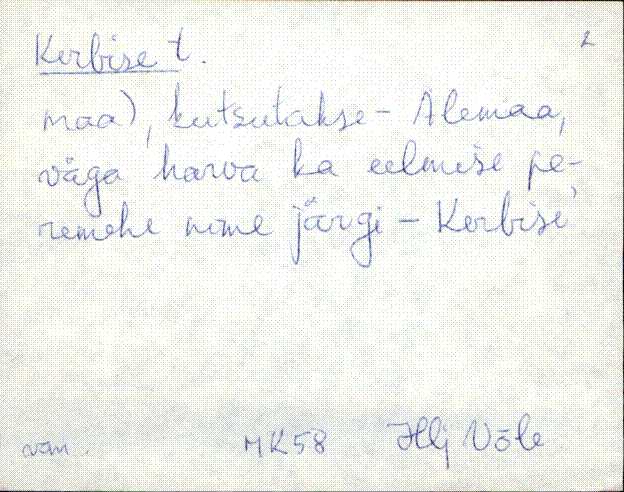 Kerbise t. 2
maa), kutsutakse - Alemaa,
väga harva ka eelmise pe-
remehe nime järgi - Kerbise'
vän. MK58 Hlj Võle